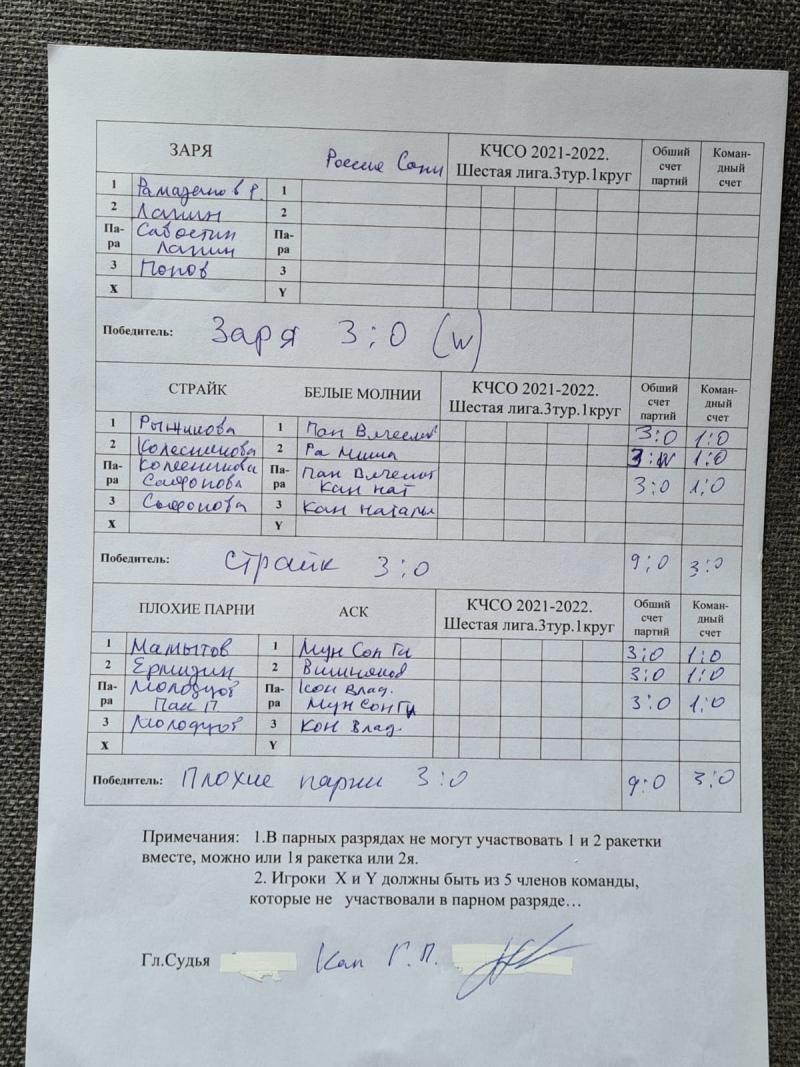 ЗАРЯ Россия Сочи КЧСО 2021-2022. Общий Коман-
Шестая лига.3тур.1круг счет дный
партий счет
1 Рамазанов Р. 1
2 Лапин 2
Па- Савостин Па-
ра Лапин ра
3 Попов 3
X Y
Победитель: Заря 3:0 (W)
СТРАЙК БЕЛЫЕ МОЛНИИ КЧСО 2021-2022. Общий Коман-
Шестая лига.3тур.1круг счет дный
партий счет
1 Рыжикова 1 Пан 3:0 1:0
2 Колесникова 2 Ра Миша 1:0
Па- Колесникова Па- Пан
ра Сафонова ра Кан Нат 3:0 1:0
3 Сафонова 3 Кан Наталья
X Y
Победитель: Страйк 3:0 9:0 3:0
ПЛОХИЕ ПАРНИ АСК КЧСО 2021-2022. Общий Коман-
Шестая лига.3тур.1круг счет дный
партий счет
1 Мамытов 1 Мун Сон Ги 3:0 1:0
2 2 Вишняков 3:0 1:0
Па- Молодцов Па- Кон Влад.
ра Пак П ра Мун Сон Ги 3:0 1:0
3 Молодцов 3 Кон Влад.
X Y
Победитель: Плохие парни 3:0 9:0 3:0
Примечания: 1.В парных разрядах не могут участвовать 1 и 2 ракетки
вместе, можно или 1я ракетка или 2я.
2. Игроки X и Y должны быть из 5 членов команды,
которые не участвовали в парном разряде…
Гл.Судья Кан Г.П.